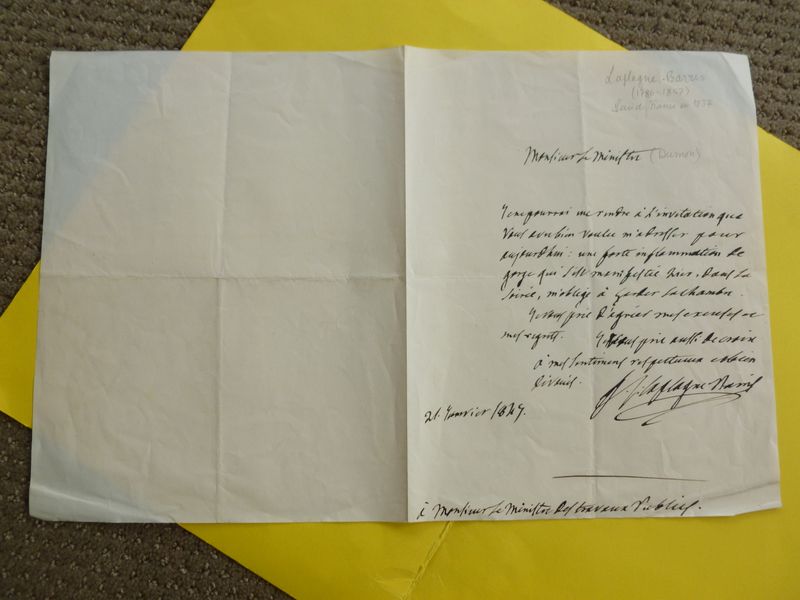 Laplagne-Barris
(1786-1857)
Monsieur Le Ministre (Dumon)
Je ne pourrai me rendre à l'invitation que
vous avez bien voulu m'adresser pour
aujourd'hui: une forte inflammation de
gorge qui s'est manifestée hier, dans la
soirée, m'oblige à garder la chambre.
Je vous prie d'agréer mes excuses et
mes regrets. Je vous prie aussi de croire
à mes sentiments respectueux et bien
dévoués. Laplagne Barris
21. Janvier 1847.
à Monsieur Le Ministre des travaux Publics.